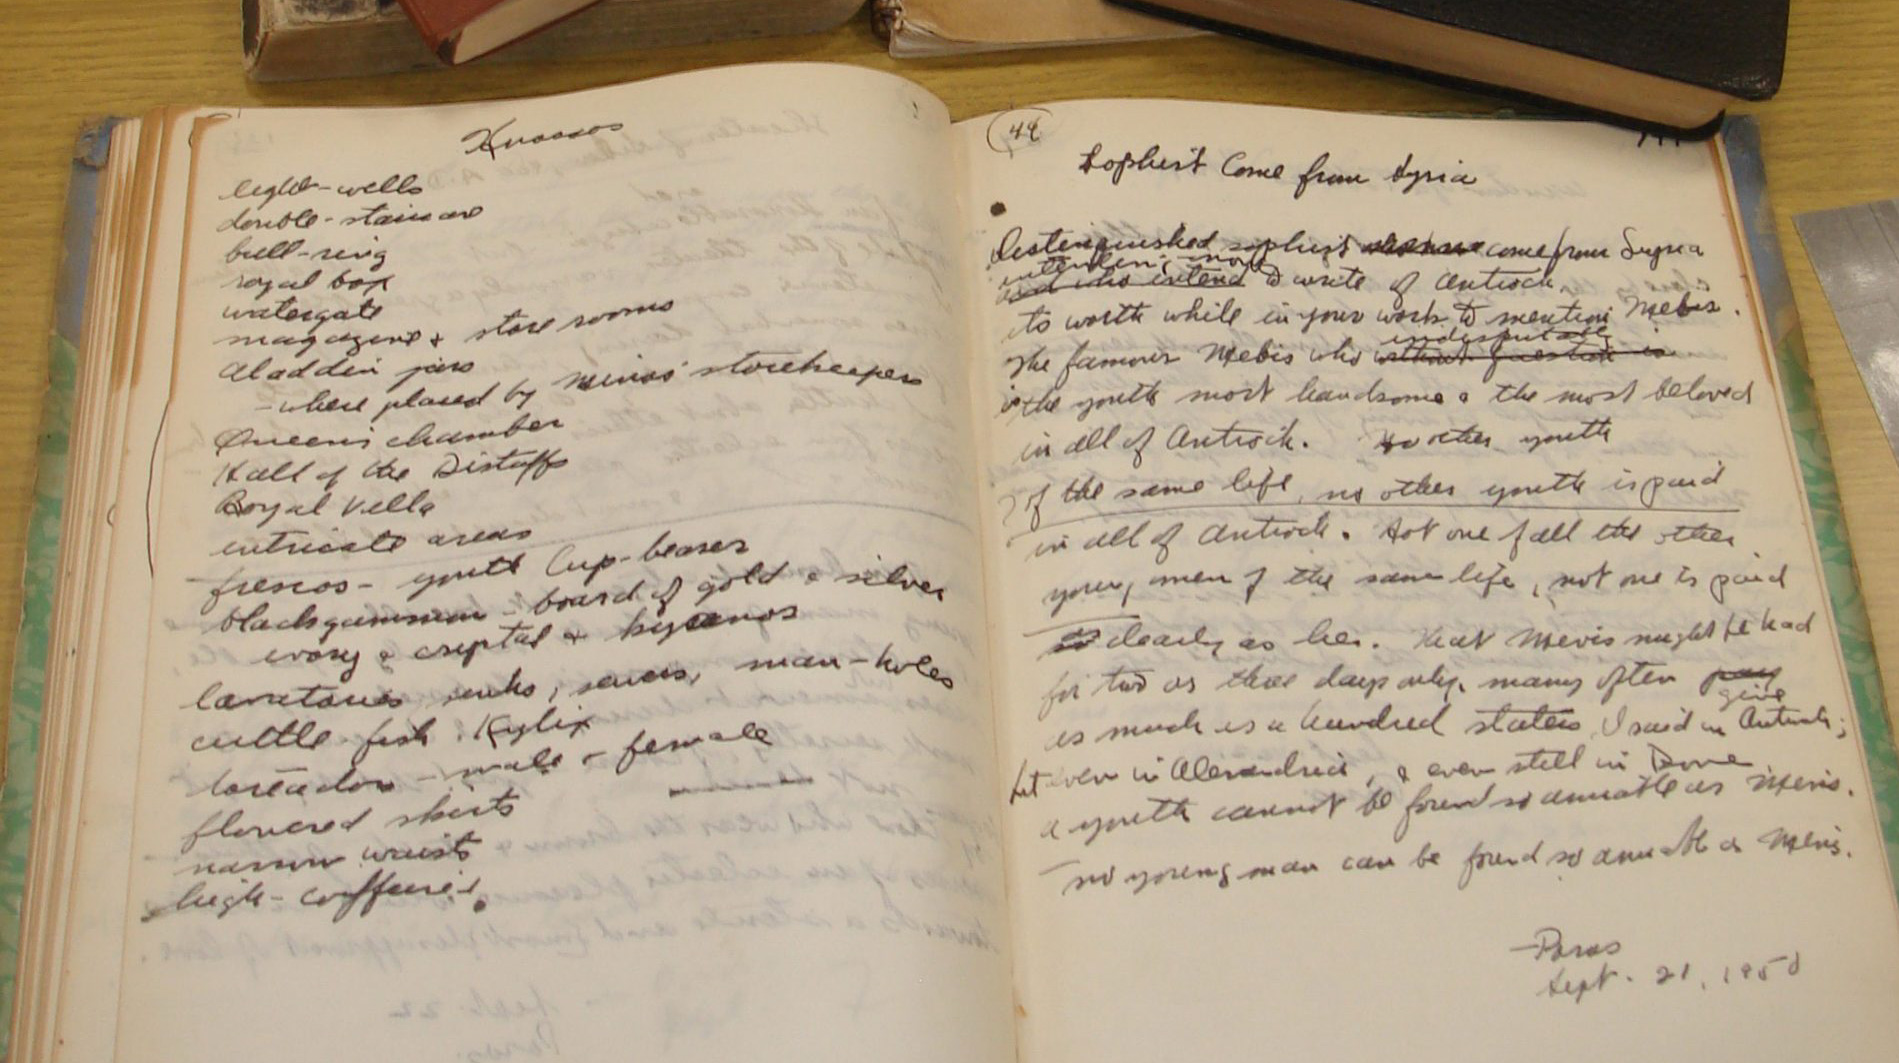 Knossos
light-wells
double-staircase
bull-ring
royal box
watergate
magazine + store rooms
Aladdin jars
- where placed by Minos' storekeepers
Queen's chamber
Hall of the Distaffs
Royal Villa
intricate areas
frescos - youth Cup-bearer
blackgammon - board of gold & silver
ivory & crystal +
lavatories sinks, sewers, man-holes
cuttle-fish Kylix
toreador - male + female
flowered skirts
narrow waists
high-coiffeured.
49
Sophist Come from Syria
Distinguished sophist come from Syria
and who intend to write of Antioch,
its worth while in your work to mention Mebis.
indisputable
The famous Mebis who without question is
is the youth most handsome & the most beloved
in all of Antioch. No other youth
of the same life, no other youth is paid
in all of Antioch. Not one of all the other
young men of the same life, not one is paid
so dearly as he. That Mevis might be had
for two or three days only, many often pay
give
as much as a hundred staters, I said in Antioch;
but even in Alexandria, & even still in Rome
a youth cannot be found so amiable as Mevis.
no young man can be found so amiable as Mevis.
- Poros
Sept. 21, 1950